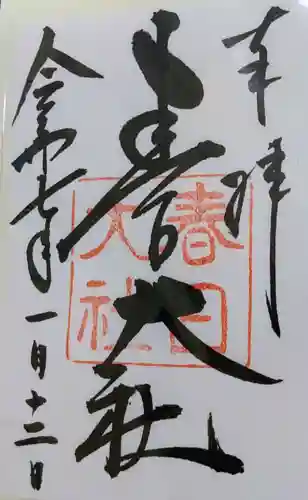 奉拝
春日大社
春日
大社
令和七年
一月十二日